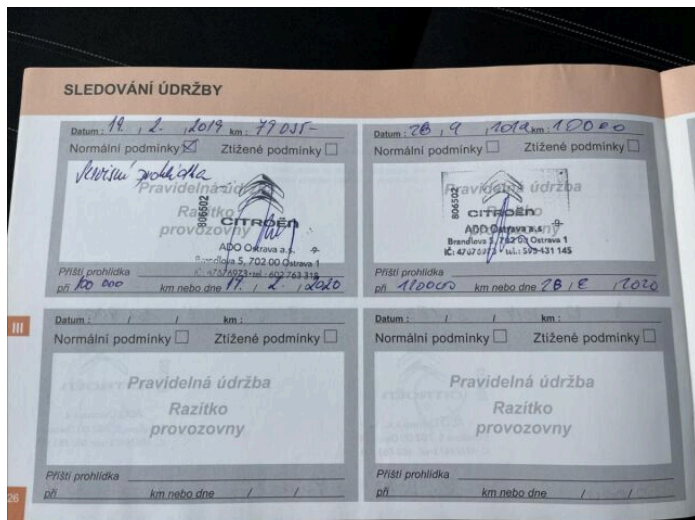 SLEDOVÁNÍ ÚDRŽBY
Datum : 19. , 2. , 2019 km : 79 035-
Normální podmínky Ztížené podmínky
Servisní prohlídka
Pravidelná údržba
Razítko
provozovny
806502
CITROËN
ADO Ostrava a.s.
Brandlova 5, 702 00 Ostrava 1
IČ: 47676973 tel.: 602 763 315
Příští prohlídka
při 100 000 km nebo dne 19. , 2. , 2020
Datum : 28 , 9 , km :
Normální podmínky Ztížené podmínky
Pravidelná údržba
Razítko
provozovny
806502
CITROËN
ADO Ostrava a.s.
Brandlova 5, 702 00 Ostrava 1
IČ: 47676973 tel.: 595 431 145
Příští prohlídka
při km nebo dne 28 , , 2020
III
Datum : / / km :
Normální podmínky Ztížené podmínky
Pravidelná údržba
Razítko
provozovny
Příští prohlídka
při km nebo dne / /
Datum : / / km :
Normální podmínky Ztížené podmínky
Pravidelná údržba
Razítko
provozovny
Příští prohlídka
při km nebo dne / /
26